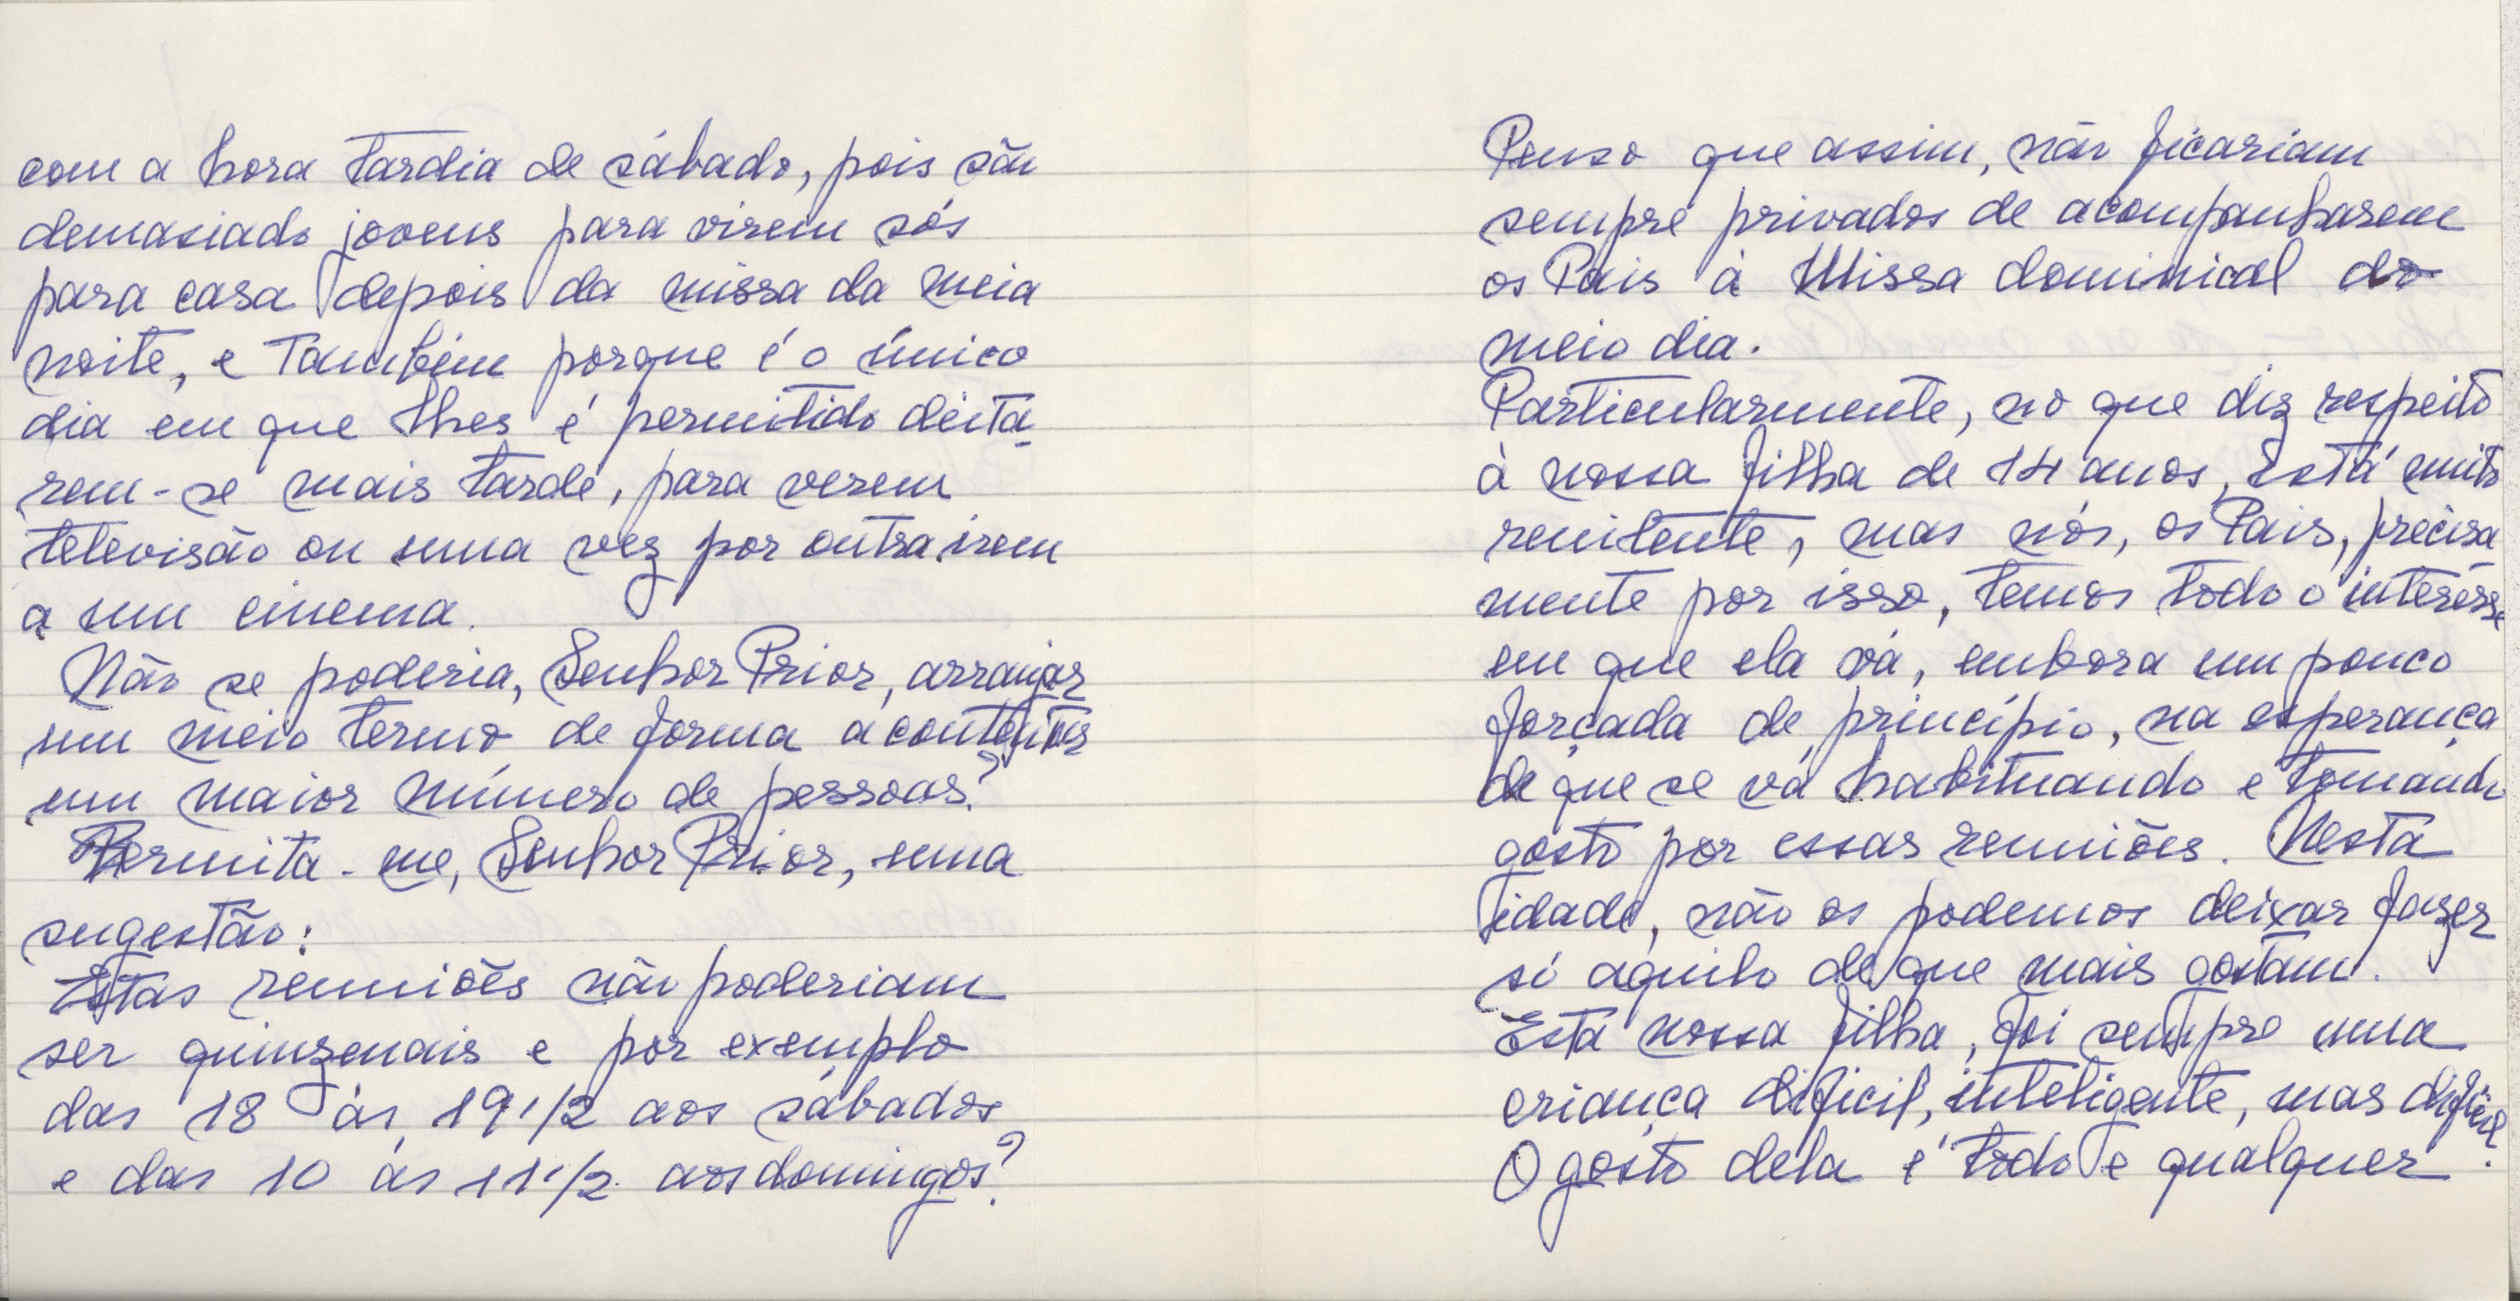 com a hora tardia de sábado, pois são
demasiado jovens para virem sós
para casa depois da missa da meia
noite, e também porque é o único
dia em que lhes é permitido deita-
rem-se mais tarde, para verem
televisão ou uma vez por outra irem
a um cinema.
Não se poderia, Senhor Prior, arranjar
um meio termo de forma a contentar
um maior número de pessoas?
Permita-me, Senhor Prior, uma
sugestão:
Estas reuniões não poderiam
ser quinzenais e por exemplo
das 18 às 19 1/2 aos sábados
e das 10 às 11 1/2 aos domingos?
Penso que assim, não ficariam
sempre privados de acompanharem
os Pais à Missa dominical do
meio dia.
Particularmente, no que diz respeito
à nossa filha de 14 anos, está muito
renitente, mas nós, os Pais, precisa
mente por isso, temos todo o interesse
em que ela vá, embora um pouco
forçada de princípio, na esperança
de que se vá habituando e tomando
gosto por essas reuniões. Nesta
idade, não os podemos deixar fazer
só aquilo de que mais gostam.
Esta nossa filha, foi sempre uma
criança difícil, inteligente, mas difícil.
O gosto dela é todo e qualquer